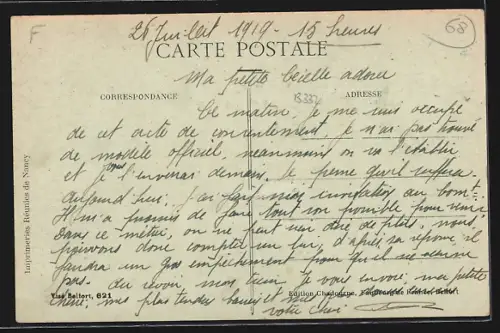 F
68
26 Juillet 1919 - 15 heures
CARTE POSTALE
Ma petite adorée
CORRESPONDANCE
ADRESSE
Ce matin, je me suis occupé
de cet acte de consentement, je n'ai pas trouvé
de modèle officiel, néanmoins on va l'établir
et je vous l'enverrai demain. Je pense qu'il suffira
aujourd'hui, j'ai fait mon invitation au
Il m'a promis de faire tout son possible pour venir
Dans ce métier, on ne peut rien dire de plus, nous
pouvons donc compter sur lui, d'après sa réponse, il
faudra un gros empêchement pour qu'il ne vienne
pas. Au revoir, mon tien, Je vous envoie, ma petite
chérie, mes plus tendres baisers et
votre
Imprimeries Réunies de Nancy
Visé Belfort, 821
Edition